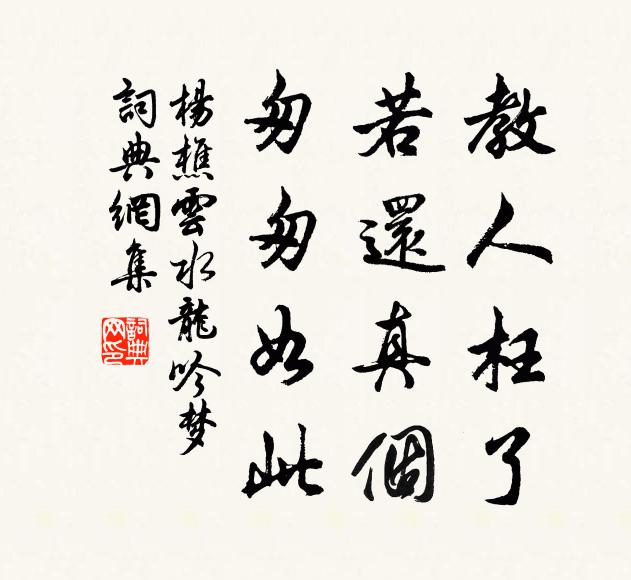 教人枉了
若還真個
匆匆如此
楊樵雲水龍吟梦
詞典網集
詞典
网印